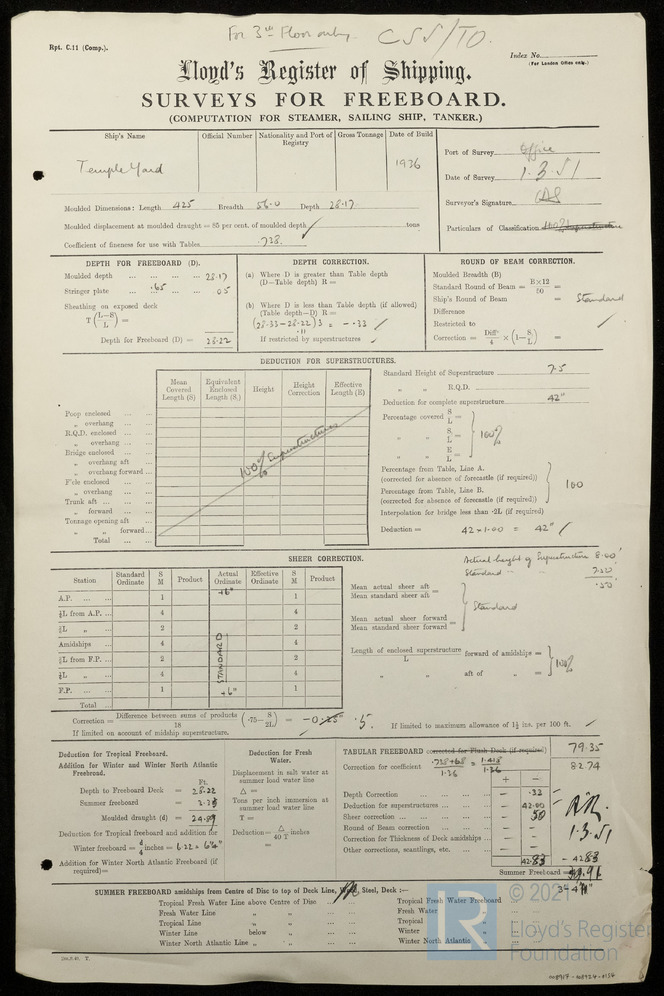 For 3rd Floor only. CSS/TO.
Rpt. C.11 (Comp.).
Index No.
(For London Office only.)
Lloyd's Register of Shipping.
SURVEYS FOR FREEBOARD.
(COMPUTATION FOR STEAMER, SAILING SHIP, TANKER.)
Ship's Name Official Number Nationality and Port of Registry Gross Tonnage Date of Build
Temple Yard 1936
Port of Survey Office
Date of Survey 1.3.51
Surveyor's Signature
Particulars of Classification
Moulded Dimensions: Length 425 Breadth 56.0 Depth 28.17
Moulded displacement at moulded draught = 85 per cent. of moulded depth tons
Coefficient of fineness for use with Tables .738.
DEPTH FOR FREEBOARD (D).
Moulded depth ... 28.17
Stringer plate ... .65 0.5
Sheathing on exposed deck
T (L–S/L) =
Depth for Freeboard (D) = 28.22
DEPTH CORRECTION.
(a) Where D is greater than Table depth
(D–Table depth) R =
(b) Where D is less than Table depth (if allowed)
(Table depth–D) R =
(28.33–28.22) 3 = -.33 ✓
.11
If restricted by superstructures
ROUND OF BEAM CORRECTION.
Moulded Breadth (B)
Standard Round of Beam = B×12/50 =
Ship's Round of Beam = Standard
Difference
Restricted to
Correction = Diff./4 × (1–S/L) =
DEDUCTION FOR SUPERSTRUCTURES.
Mean Covered Length (S) Equivalent Enclosed Length (S₁) Height Height Correction Effective Length (E)
Poop enclosed
„ overhang
R.Q.D. enclosed
„ overhang
Bridge enclosed
„ overhang aft
„ overhang forward
F'cle enclosed
„ overhang
Trunk aft
„ forward
Tonnage opening aft
„ „ forward
Total
100% Superstructures
Standard Height of Superstructure 7.5
„ „ R.Q.D.
Deduction for complete superstructure 42"
Percentage covered S/L =
„ „ S₁/L = 100%
„ „ E/L =
Percentage from Table, Line A.
(corrected for absence of forecastle (if required))
Percentage from Table, Line B. 100
(corrected for absence of forecastle (if required))
Interpolation for bridge less than ·2L (if required)
Deduction = 42 × 1.00 = 42" ✓
SHEER CORRECTION.
Actual height of Superstructure 8.00'
Standard „ „ 7.50
.50'
Station Standard Ordinate S M Product Actual Ordinate Effective Ordinate S M Product
A.P. 1 +6" 1
⅙L from A.P. 4 4
⅓L „ 2 2
Amidships 4 4
⅓L from F.P. 2 2
⅙L „ 4 4
F.P. 1 +6" 1
Total
STANDARD
Mean actual sheer aft
Mean standard sheer aft =
Standard
Mean actual sheer forward
Mean standard sheer forward =
Length of enclosed superstructure/L forward of amidships =
„ aft of „ = 100%
Correction = Difference between sums of products/18 (·75–S/2L) = –0.25" .5.
If limited on account of midship superstructure.
If limited to maximum allowance of 1½ ins. per 100 ft.
Deduction for Tropical Freeboard.
Addition for Winter and Winter North Atlantic Freeboard.
Ft.
Depth to Freeboard Deck = 28.22
Summer freeboard =
Moulded draught (d) = 24.89
Deduction for Tropical freeboard and addition for
Winter freeboard = d/4 inches = 6.22 = 6¼"
Addition for Winter North Atlantic Freeboard (if required)=
Deduction for Fresh Water.
Displacement in salt water at summer load water line
Δ =
Tons per inch immersion at summer load water line
T =
Deduction= Δ/40 T inches
=
TABULAR FREEBOARD corrected for Flush Deck (if required) 79.35
Correction for coefficient .738+.68/1.36 = 1.418/1.36 82.74
+ –
Depth Correction – .33
Deduction for superstructures – 42.00
Sheer correction – .50
Round of Beam correction – –
Correction for Thickness of Deck amidships – –
Other corrections, scantlings, etc. – –
42.83 – 42.83
1.3.51
Summer Freeboard = 39.91
SUMMER FREEBOARD amidships from Centre of Disc to top of Deck Line, Wood, Steel, Deck :—
Tropical Fresh Water Line above Centre of Disc
Fresh Water Line „ „
Tropical Line „ „
Winter Line below „
Winter North Atlantic Line „ „
Tropical Fresh Water Freeboard
Fresh Water „
Tropical „
Winter „
Winter North Atlantic „
LR
© 2021
Lloyd's Register
Foundation
008917-008924-0154